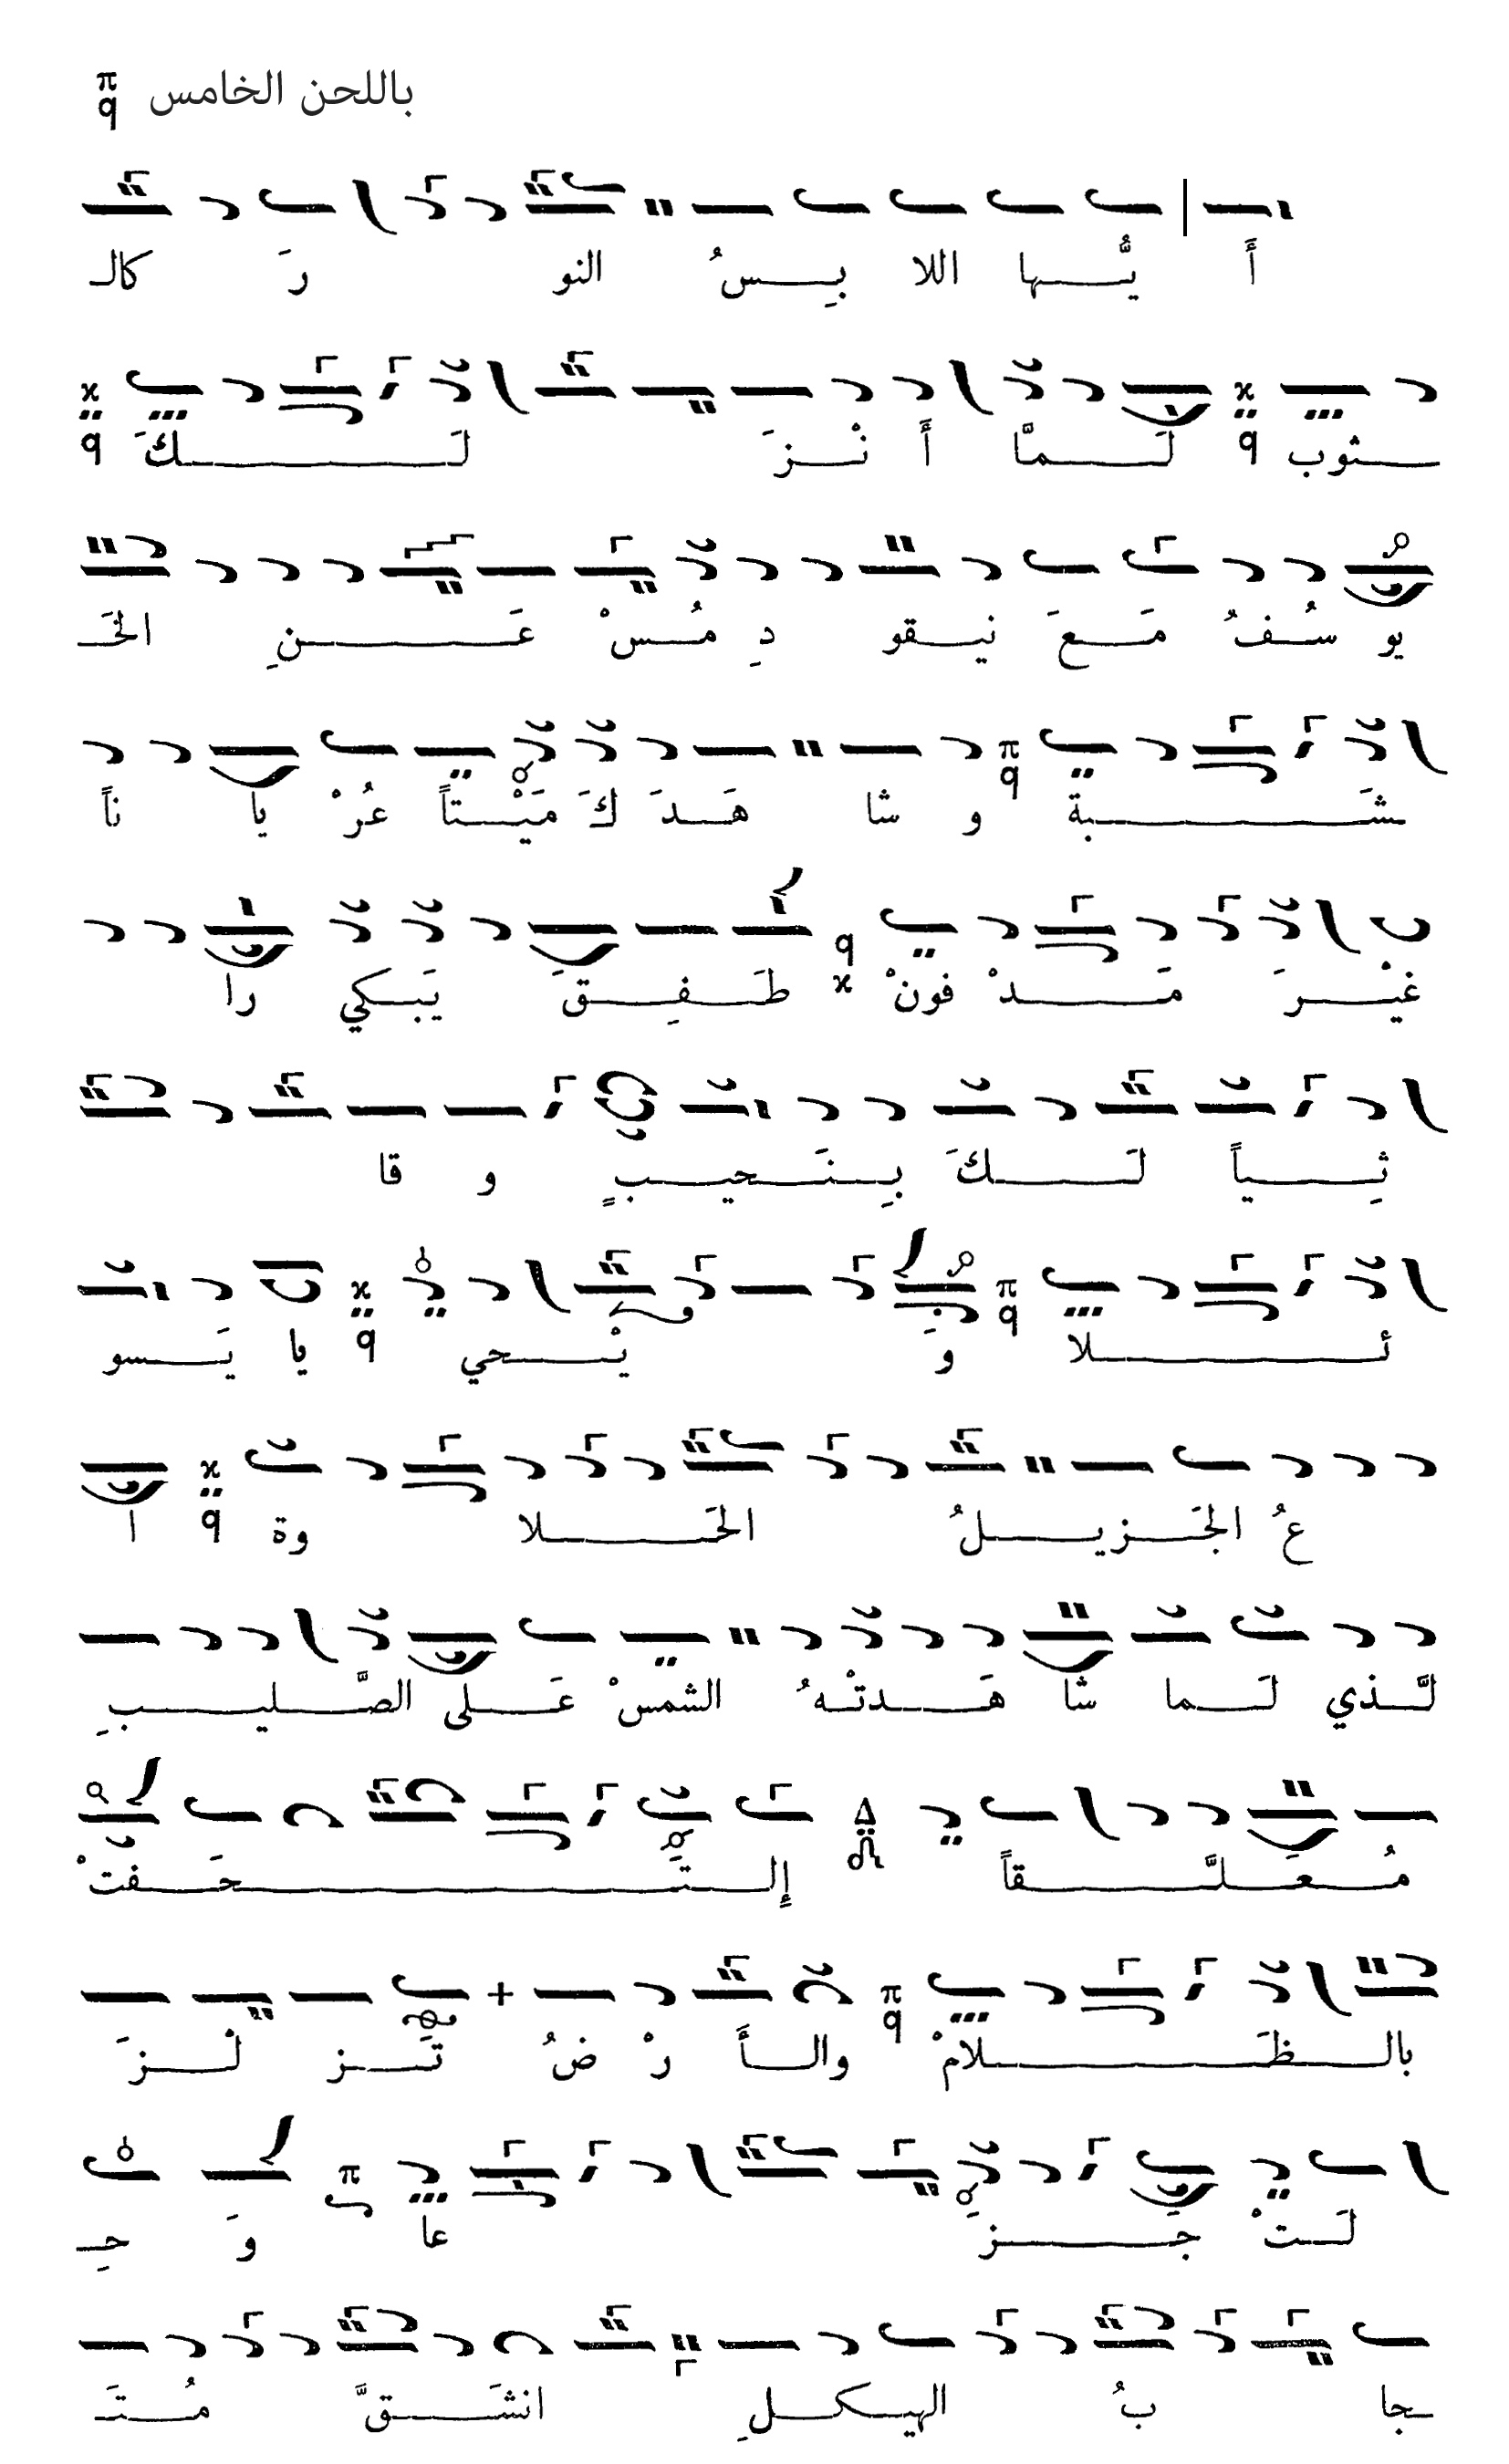 باللحن الخامس π q
أَ يُّـها اللا بِـسُ النو رَ كالـ
ـثوب لَـمَّا أَ نْـزَ لَـكَ
يو سُـفُ مَـعَ نيـقو دِ مُـسْ عَـنِ الخَـ
ـشَـبة و شا هَـدَ كَ مَيْـتاً عُرْ يا ناً
غيْـرَ مَـدْ فونْ طَـفِـقَ يَبـكي را
ثِـياً لَـكَ بِـنَـحيـبٍ و قا
ئـلا وَ يْـحي يا يَـسو
عُ الجَـزيـلُ الحَـلا وة ا
لَّـذي لَـما شا هَـدتْـهُ الشمسْ عَـلى الصَّـليـبِ
مُـعَـلَّـقاً إلـتَـحَـفتْ
بالـظَـلامْ والـأَ رْ ضُ تَـز لْـزَ
لَـتْ جَـزَ عا وَ حِـ
ـجا بُ الهيـكـلِ انشَـقَّ مُـتَـ